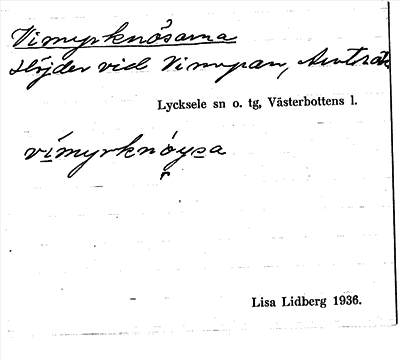 Vimyrknösarna
Höjder vid Vimyran,
Lycksele sn o. tg, Västerbottens l.
vímyrknøyṣa
Lisa Lidberg 1936.